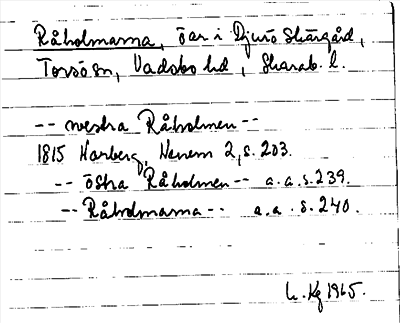 Råholmarna, öar i Djurö Skärgård,
Torsö sn, Vadsbo hd, Skarab. l.
-- westra Råholmen --
1815 Harberg, Wenern 2, s. 203.
-- östra Råholmen -- a.a. s. 239.
-- Råholmarna -- a.a. s. 240.
Kg 1965.